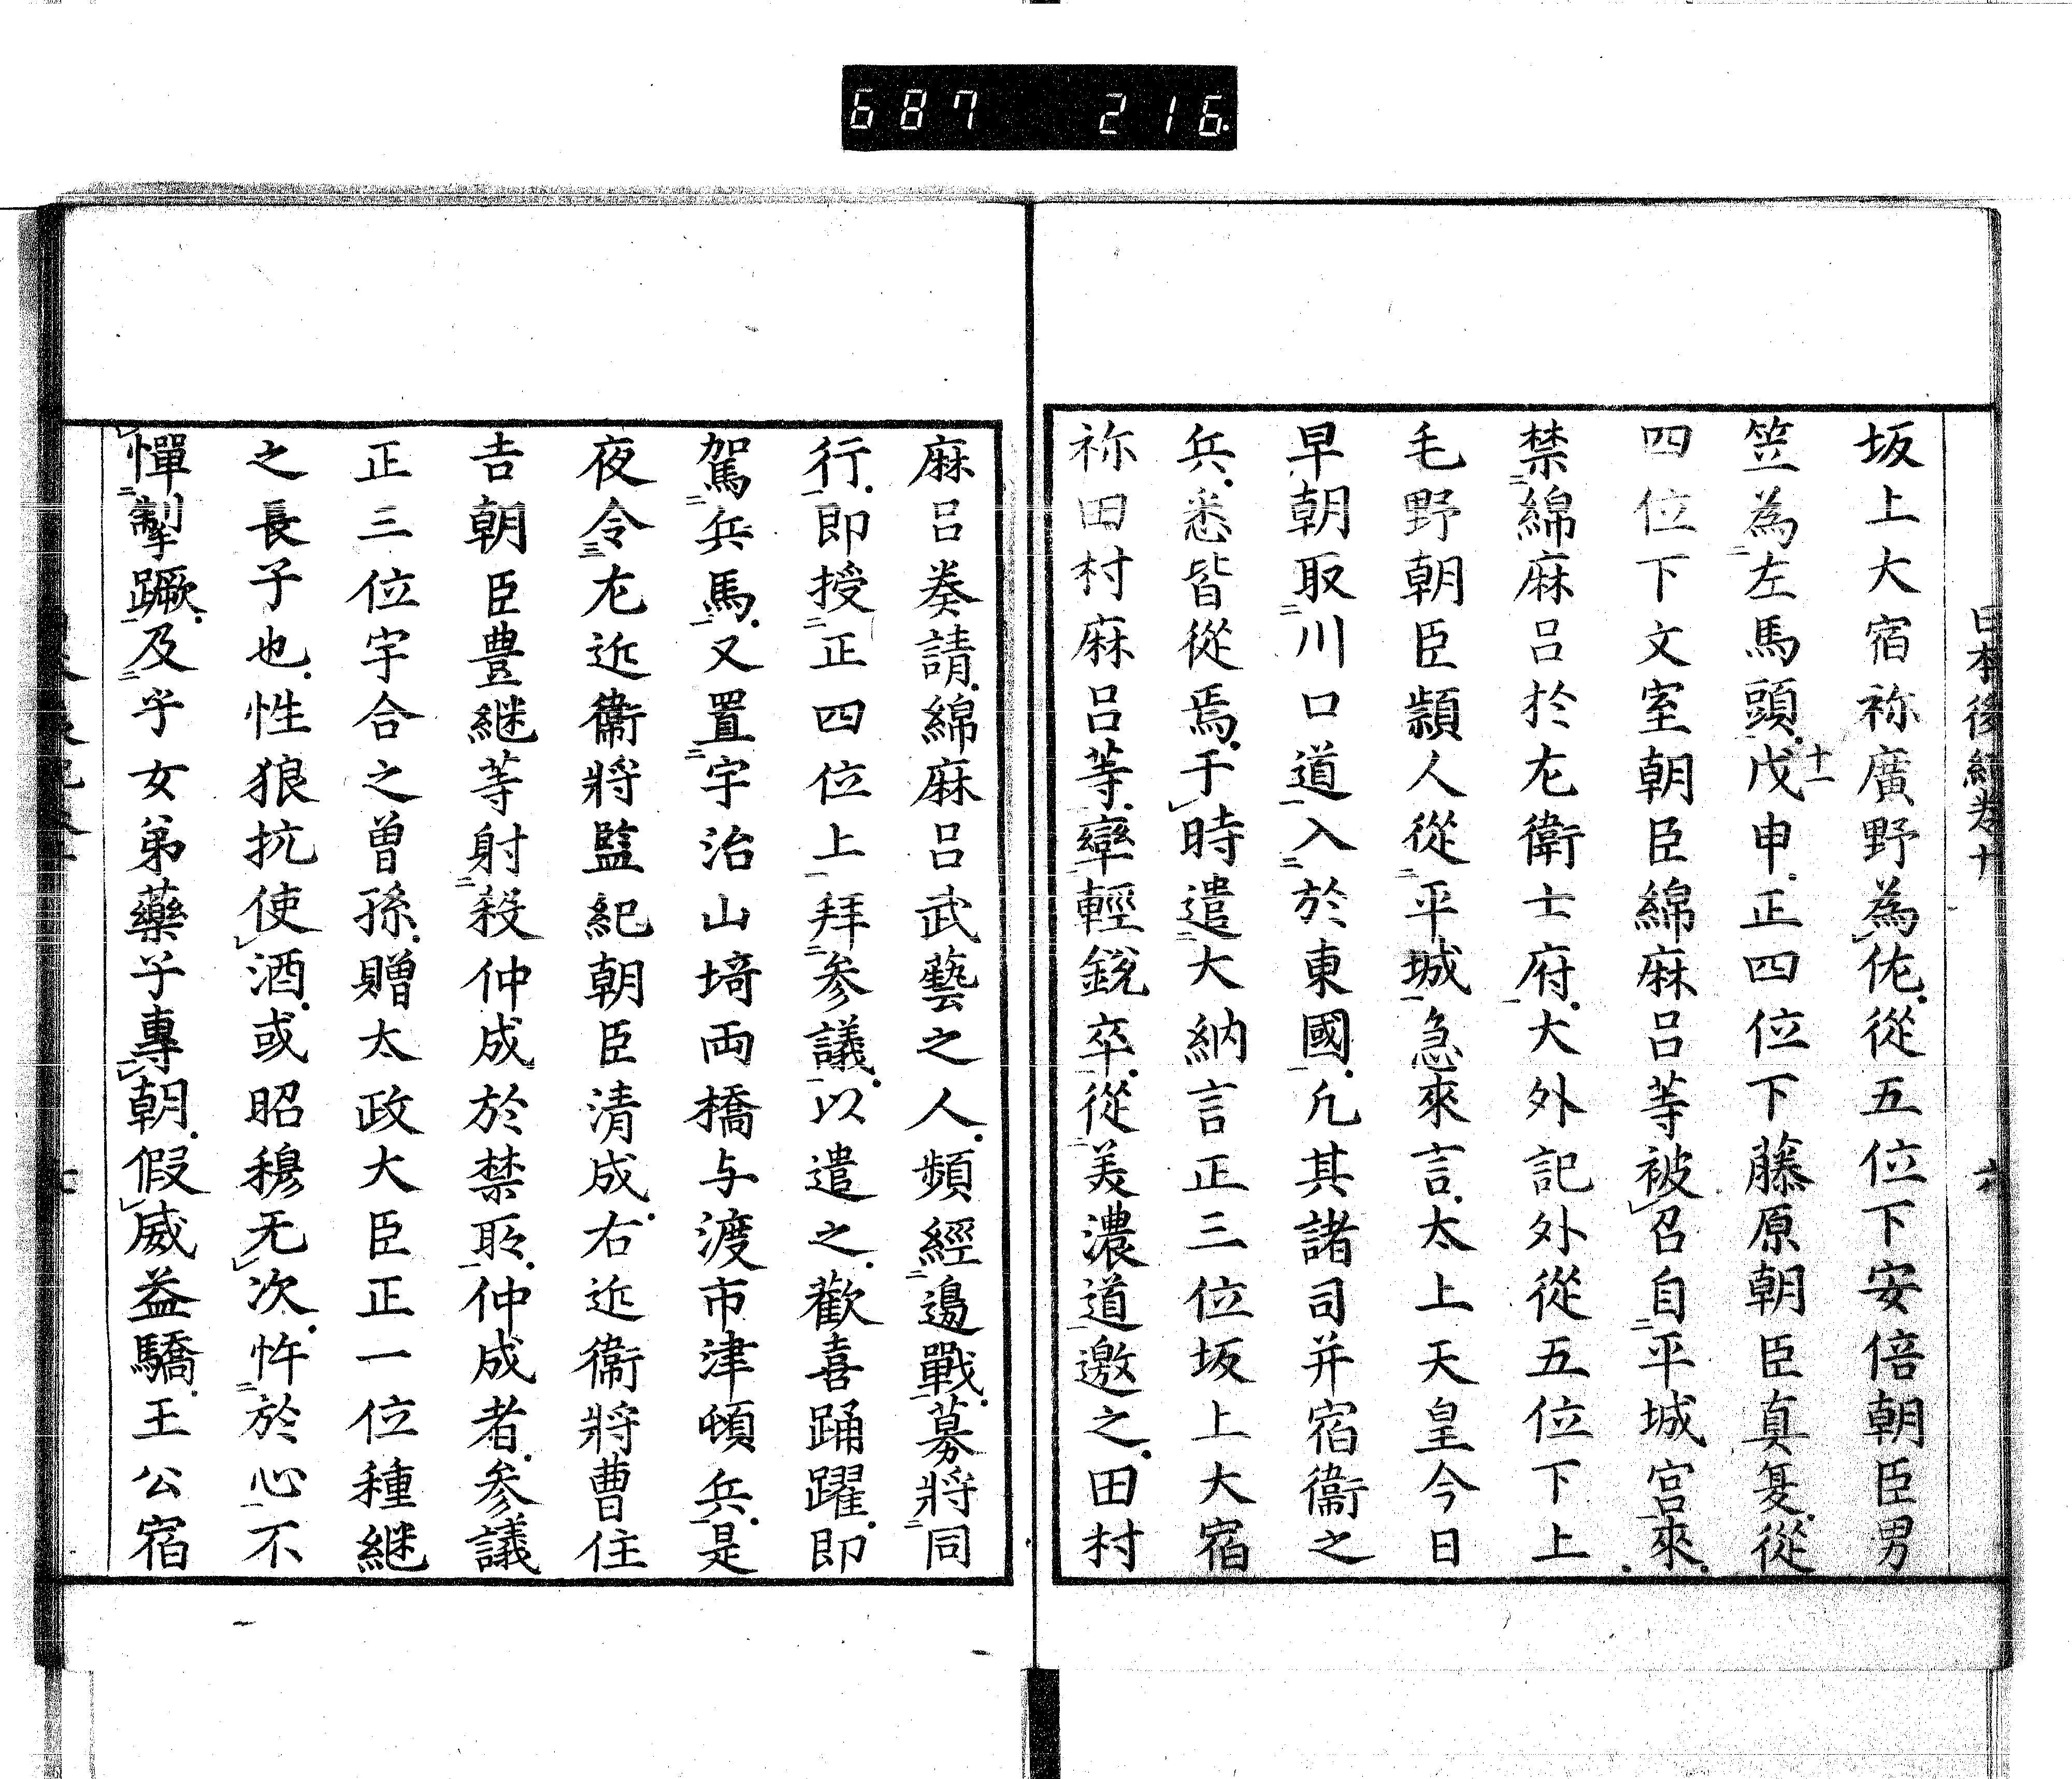 687 216
日本後紀巻十 六
坂上大宿祢廣野為佐從五位下安倍朝臣男
笠為左馬頭戊申正四位下藤原朝臣真夏從
十一
四位下文室朝臣綿麻呂等被召自平城宮來
禁綿麻呂於左衛士府大外記外從五位下上
毛野朝臣穎人從平城急來言太上天皇今日
早朝取川口道入於東國凢其諸司并宿衞之
兵悉皆從焉于時遣大納言正三位坂上大宿
祢田村麻呂等率輕銳卒從美濃道邀之田村
麻呂奏請綿麻呂武藝之人頻經邊戰募將同
行即授正四位上拜参議以遣之歡喜踊躍即
駕兵馬又置宇治山埼両橋与渡市津頓兵是
夜令左近衞將監紀朝臣清成右近衞將曹住
吉朝臣豊継等射殺仲成於禁所仲成者参議
正三位宇合之曽孫贈太政大臣正一位種継
之長子也性狼抗使酒或昭穆无次忤於心不
憚掣蹶及乎女弟藥子專朝假威益驕王公宿